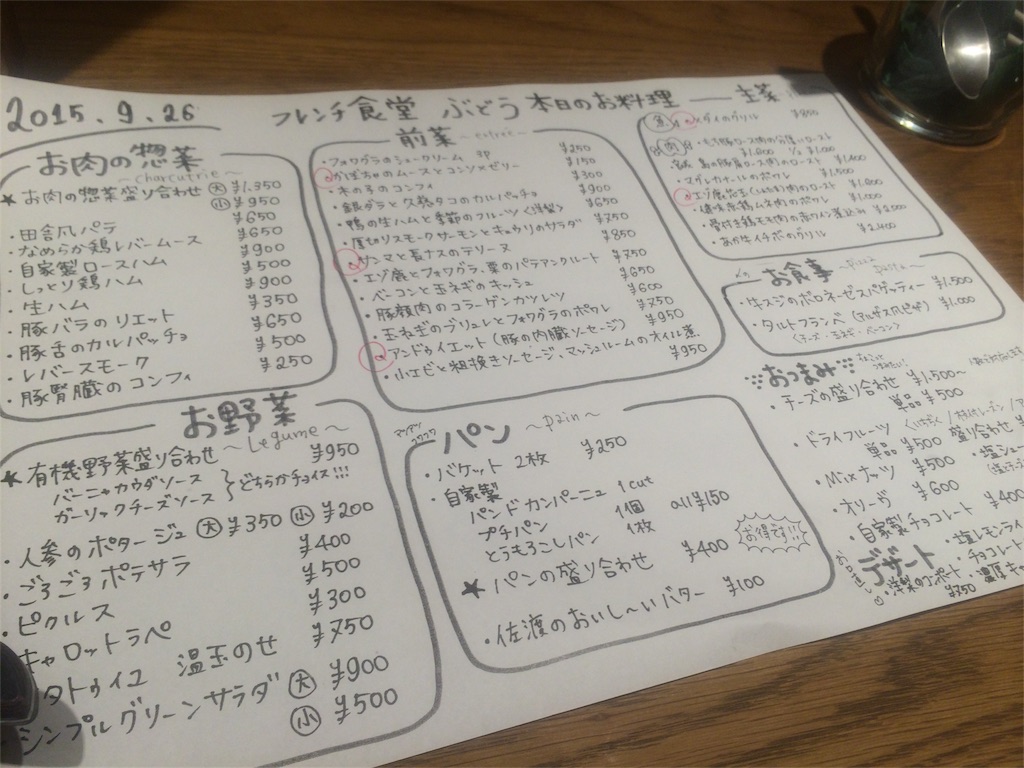 2015.9.26
フレンチ食堂 ぶどう 本日のお料理 — 主菜
お肉の惣菜
~charcutrie~
★お肉の惣菜盛り合わせ 大 ¥1.350
小 ¥950
・田舎風パテ ¥650
・なめらか鶏レバームース ¥650
・自家製ロースハム ¥900
・しっとり鶏ハム ¥500
・生ハム ¥900
・豚バラのリエット ¥350
・豚舌のカルパッチョ ¥650
・レバースモーク ¥500
・豚腎臓のコンフィ ¥250
お野菜
~Legume~
★有機野菜盛り合わせ ¥950
バーニャカウダソース
ガーリックチーズソース
どちらかチョイス!!!
・人参のポタージュ 大 ¥350 小 ¥200
・ごろごろポテサラ ¥400
・ピクルス ¥500
キャロットラペ ¥300
タトゥイユ 温玉のせ ¥750
シンプルグリーンサラダ 大 ¥900
小 ¥500
前菜
・フォワグラのシュークリーム 1P ¥250
・かぼちゃのムースとコンソメゼリー ¥150
・木の子のコンフィ ¥300
・銀ダラと久慈タコのカルパッチョ ¥900
・鴨の生ハムと季節のフルーツ〈洋梨〉 ¥650
・厚切りスモークサーモンとキュウリのサラダ ¥750
・サンマと長ナスのテリーヌ ¥850
・エゾ鹿とフォワグラ、栗のパテアンクルート ¥750
・ベーコンと玉ねぎのキッシュ ¥650
・豚頬肉のコラーゲンカツレツ ¥600
・玉ねぎのブリュレとフォワグラのポワレ ¥750
・アンドゥイエット(豚の内臓ソーセージ) ¥950
・小エビと粗挽きソーセージ、マッシュルームのオイル煮 ¥950
パン
~pain~
・バケット 2枚 ¥250
・自家製
パンドカンパーニュ 1cut
プチパン 1個 all¥150
とうもろこしパン 1枚
★パンの盛り合わせ ¥400
お得です!!
・佐渡のおいし~いバター ¥100
魚
ダイのグリル
肉
・マグレカナールのポワレ
・あか牛イチボのグリル ¥2.400
お食事
~pizza pasta~
・牛スジのボロネーゼスパゲッティー ¥1.500
・タルトフランベ(アルザス風ピザ) ¥1.000
(チーズ・玉ネギ・ベーコン)
おつまみ
・チーズの盛り合わせ ¥1.500~
単品 ¥500
・ドライフルーツ
単品 ¥500 盛り合わせ
・Mixナッツ ¥500
・オリーヴ ¥600
・自家製チョコレート ¥400
デザート
・洋梨のコンポート
¥750
・塩レモン
・チョコレート